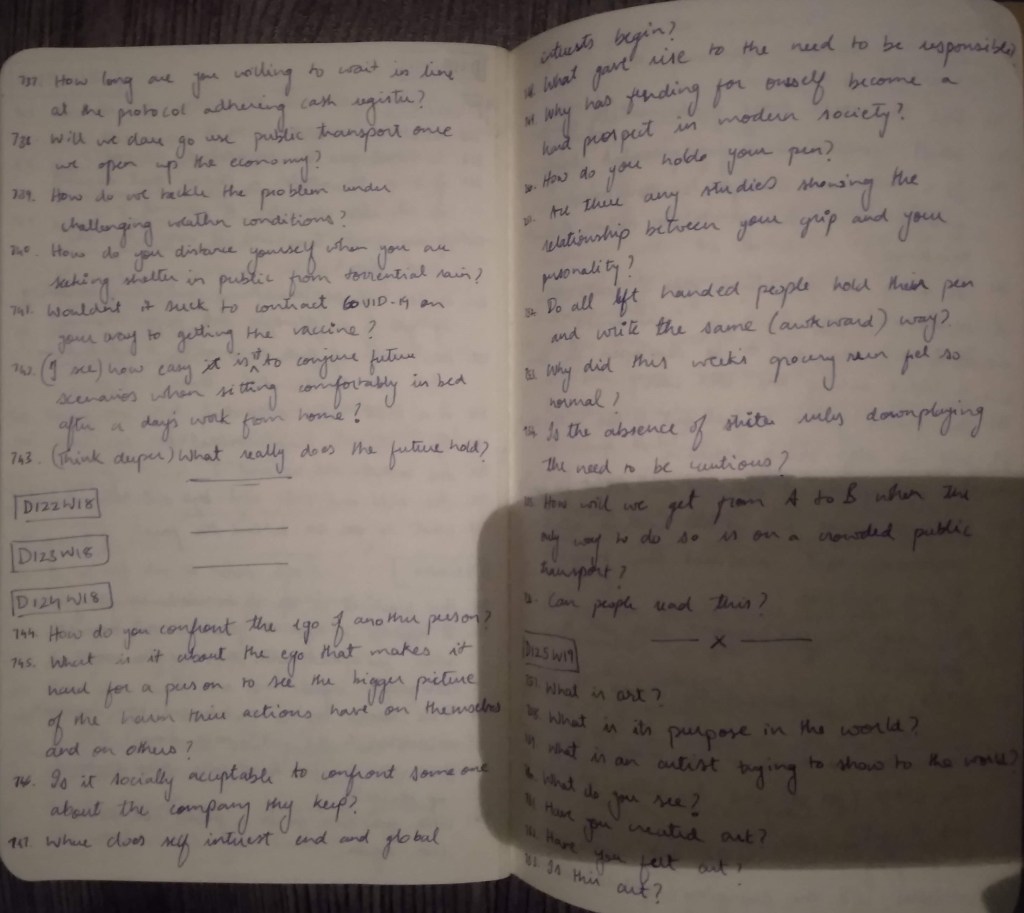 737. How long are you willing to wait in line
at the protocol adhering cash register?
738. Will we dare go use public transport once
we open up the economy?
739. How do we tackle the problem under
challenging weather conditions?
740. How do you distance yourself when you are
seeking shelter in public from torrential rain?
741. Wouldn't it suck to contract COVID-19 on
your way to getting the vaccine?
742. (I see) how easy is it to conjure future
scenarios when sitting comfortably in bed
after a day's work from home?
743. (Think deeper) What really does the future hold?
D122W18
D123W18
D124W18
744. How do you confront the ego of another person?
745. What is it about the ego that makes it
hard for a person to see the bigger picture
of the harm their actions have on themselves
and on others?
746. Is it socially acceptable to confront someone
about the company they keep?
747. Where does self interest end and global
interests begin?
What gave rise to the need to be responsible?
Why has funding for oneself become a
hard prospect in modern society?
How do you hold your pen?
Are there any studies showing the
relationship between your grip and your
personality?
Do all left handed people hold their pen
and write the same (awkward) way?
Why did this week's grocery run feel so
normal?
Is the absence of stricter rules downplaying
the need to be cautious?
How will we get from A to B when the
only way to do so is on a crowded public
transport?
Can people read this?
X
D125W19
What is art?
What is its purpose in the world?
What is an artist trying to show to the world?
What do you see?
Have you created art?
Have you felt art?
Is this art?